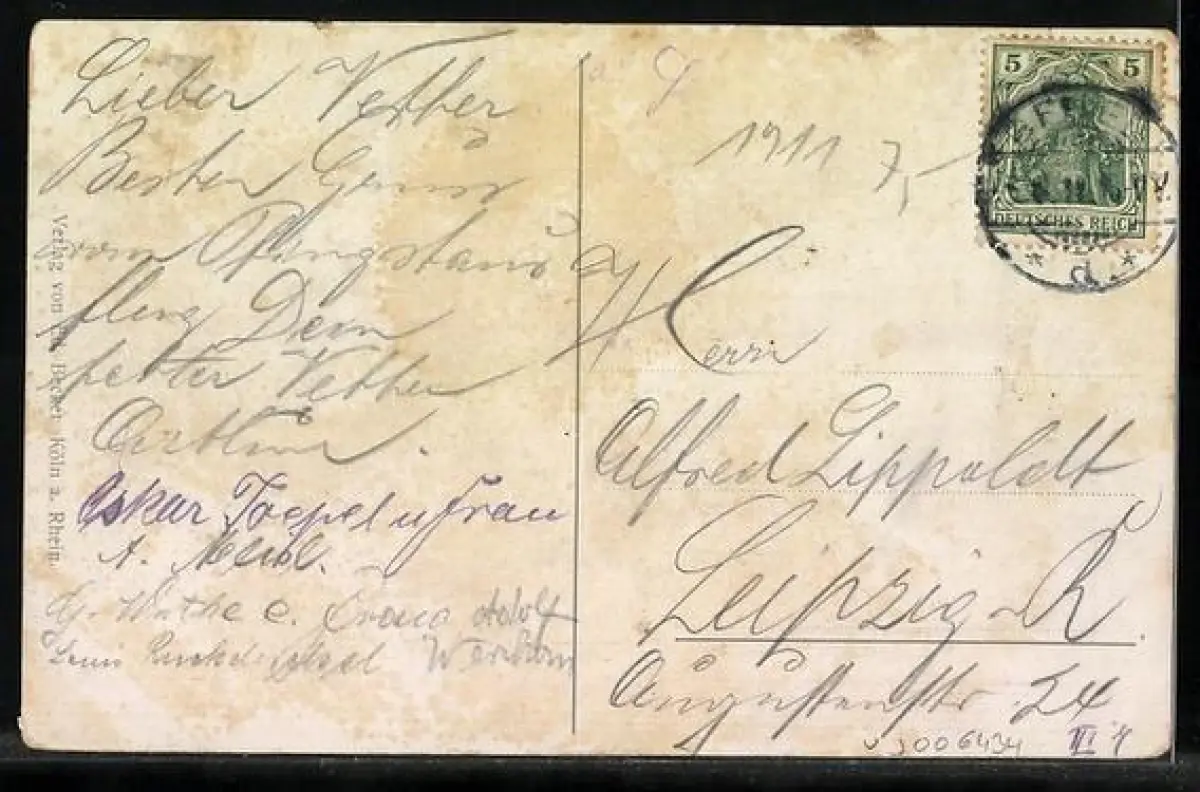 Lieber Vetter
Besten Gruss
vom Pfingstaus
flug Dein
Vetter
Arthur.
Oskar Toepel u Frau
A.
G. Wuthe e. Adolf
Verlag von Becker Köln a. Rhein.
1911 7,-
5 5
DEUTSCHES REICH
Herrn
Alfred Lippoldt
Leipzig-R.
Augustenstr 24
VJ006434 III r